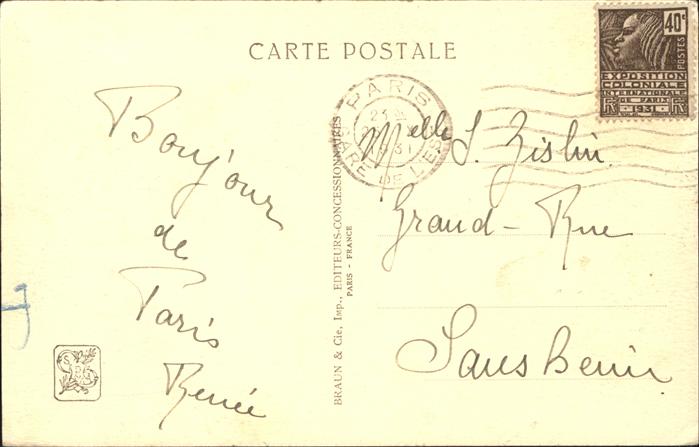 CARTE POSTALE
Bonjour
de
Paris
Renée
BRAUN & Cie, Imp., EDITEURS-CONCESSIONNAIRES
PARIS - FRANCE
PARIS
GARE DE L'EST
40c
POSTES
EXPOSITION
COLONIALE
INTERNATIONALE
DE PARIS
1931
RF RF
Melle S. Zislin
Grand-Rue
Sausheim